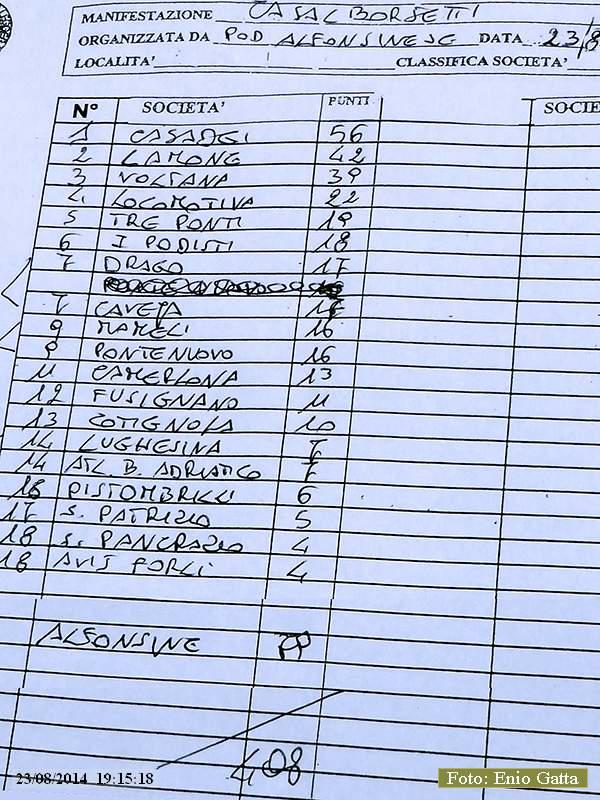 MANIFESTAZIONE CASALBORSETTI
ORGANIZZATA DA POD. ALFONSINESE DATA 23/8
LOCALITA' CLASSIFICA SOCIETA'
N° SOCIETA' PUNTI SOCIE
1 CASADEI 56
2 LAMONE 42
3 VOLTANA 39
4 LOCOMOTIVA 22
5 TRE PONTI 19
6 I PODISTI 18
7 DRAGO 17
7 CAVEJA 17
9 MAMELI 16
9 PONTENUOVO 16
11 CAMERLONA 13
12 FUSIGNANO 11
13 COTIGNOLA 10
14 LUGHESINA 7
14 ATL. B. ADRIATICO 7
16 PISTOMBRILLI 6
17 S. PATRIZIO 5
18 S. PANCRAZIO 4
18 AVIS FORLI 4
ALFONSINE
408
23/08/2014 19:15:18
Foto: Enio Gatta